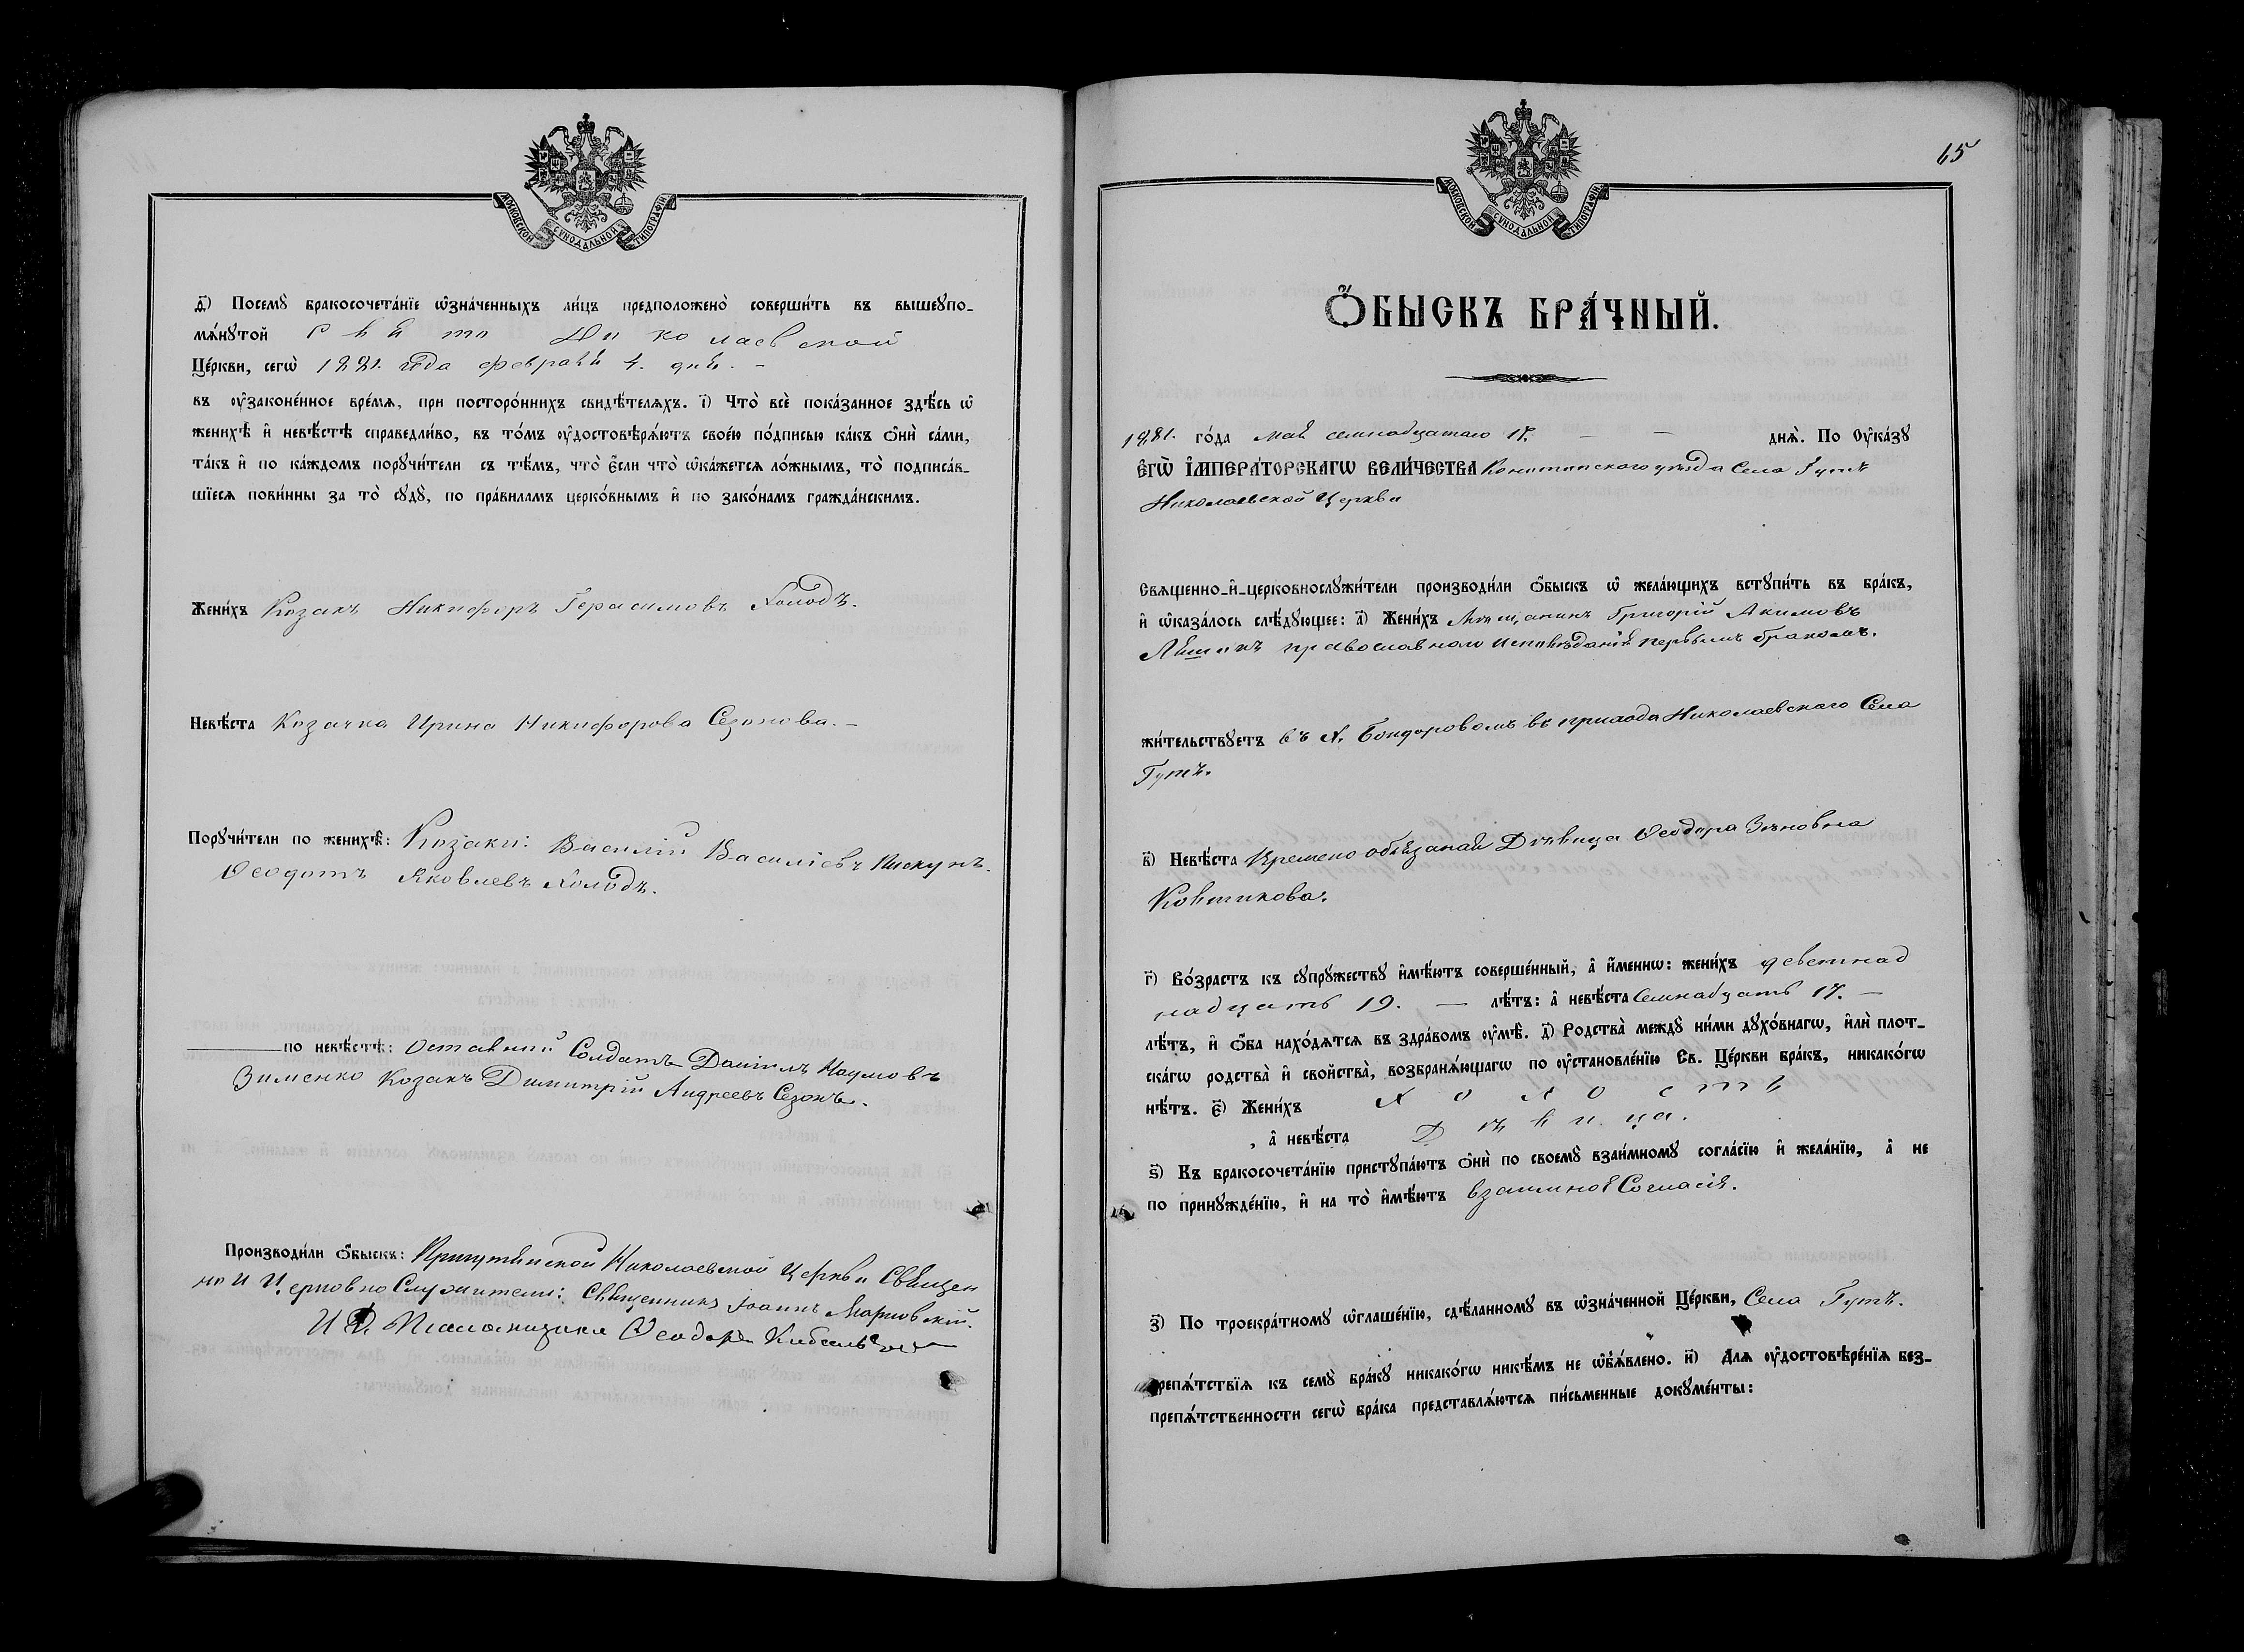 МОСКОВСКОЙ СѴНОДАЛЬНОЙ ТИПОГРАФІИ
д҃) Посемꙋ бракосочета́нїе ѡ҆зна́ченныхъ ли́цъ предположено̀ соверши́ть въ вышеꙋпо-
мѧ́нꙋтой Свято Николаевской
Це́ркви, сегѡ̀ 1881. года февраля 4. дня. –
въ ᲂу҆законе́нное вре́мѧ, при посторо́ннихъ свидѣ́телѧхъ. і҃) Что̀ всѐ пока́занное здѣ́сь ѡ҆
женихѣ̀ и҆ невѣ́стѣ справедли́во, въ то́мъ ᲂу҆достовѣрѧ́ютъ свое́ю по́дписью ка́къ ѻ҆нѝ са́ми,
та́къ и҆ по ка́ждомъ порꙋчи́тели съ тѣ́мъ, что̀ є҆́сли что̀ ѡ҆ка́жетсѧ ло́жнымъ, то̀ подписа́в-
шїесѧ пови́нны за то̀ сꙋдꙋ̀, по пра́виламъ церко́внымъ и҆ по зако́намъ гражда́нскимъ.
Жени́хъ Козакъ Никифоръ Герасимовъ Холодъ.
Невѣ́ста Козачка Ирина Никифорова Сезонова. –
Порꙋчи́тели по женихѣ̀: Козаки: Василій Василіевъ Пискунъ.
Ѳеодотъ Яковлевъ Холодъ.
по невѣ́стѣ: Оставний Солдатъ Даніилъ Наумовъ
Зименко Козакъ Димитрій Андреевъ Сезонъ.
Производи́ли ѻ҆́быскъ: Николаевской Церкви Священ
но и Церковно Служители: Священникъ Іоаннъ
И Д. Псаломщика Ѳеодоръ
65
МОСКОВСКОЙ СѴНОДАЛЬНОЙ ТИПОГРАФІИ
Ѻ҆́БЫСКЪ БРА́ЧНЫЙ.
1881. го́да мая семнадцатаго 17. – – днѧ̀. По Оу҆ка́зꙋ
Є҆ГѠ̀ І҆МПЕРА́ТОРСКАГѠ ВЕЛИ́ЧЕСТВА уѣзда Села Гутъ
Николаевской Церкви
Свѧщенно-и҆-церковнослꙋжи́тели производи́ли ѻ҆́быскъ ѡ҆ жела́ющихъ встꙋпи́ть въ бра́къ,
и҆ ѡ҆каза́лось слѣ́дꙋющее: а҃) Жени́хъ Мѣщанинъ Григорій Акимовъ
православнаго исповѣданія первымъ бракомъ.
жи́тельствꙋетъ въ х. Бондоровомъ въ прихода Николаевскаго Села
Гутъ.
в҃) Невѣ́ста Временно обязаная Дѣвица Ѳеодора Зѣновна
Ковтикова.
г҃) Во́зрастъ къ сꙋпрꙋ́жествꙋ и҆мѣ́ютъ соверше́нный, а҆ и҆́меннѡ: жени́хъ девятнад
надцать 19. – лѣ́тъ: а҆ невѣ́ста Семнадцать 17. –
лѣ́тъ, и҆ ѻ҆́ба нахо́дѧтсѧ въ здра́вомъ ᲂу҆мѣ̀. д҃) Родства̀ междꙋ̀ ни́ми дꙋхо́внагѡ, и҆лѝ плот-
ска́гѡ родства̀ и҆ сво́йства, возбранѧ́ющагѡ по ᲂу҆становле́нїю Св. Це́ркви бра́къ, никако́гѡ
нѣ́тъ. є҃) Жени́хъ Холостъ
, а҆ невѣ́ста Дѣвица.
ѕ҃) Къ бракосочета́нїю пристꙋпа́ютъ ѻ҆нѝ по своемꙋ̀ взаи́мномꙋ согла́сїю и҆ жела́нїю, а҆ не
по принꙋжде́нїю, и҆ на то̀ и҆мѣ́ютъ взаимное Согласія.
з҃) По троекра́тномꙋ ѡ҆глаше́нїю, сдѣ́ланномꙋ въ ѡ҆зна́ченной Це́ркви, Села Гутъ.
препѧ́тствїѧ къ семꙋ̀ бра́кꙋ никако́гѡ никѣ́мъ не ѡ҆б̾ѧ́влено. и҃) Длѧ ᲂу҆достовѣре́нїѧ без-
препѧ́тственности сегѡ̀ бра́ка представлѧ́ютсѧ пи́сьменные докꙋме́нты: